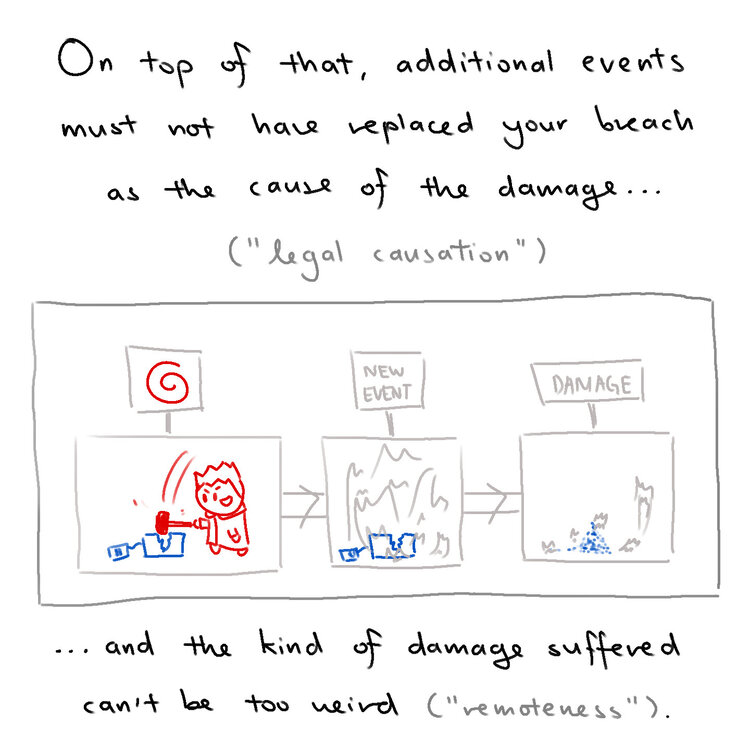 On top of that, additional events
must not have replaced your breach
as the cause of the damage...
("legal causation")
NEW
EVENT
DAMAGE
... and the kind of damage suffered
can't be too weird ("remoteness").